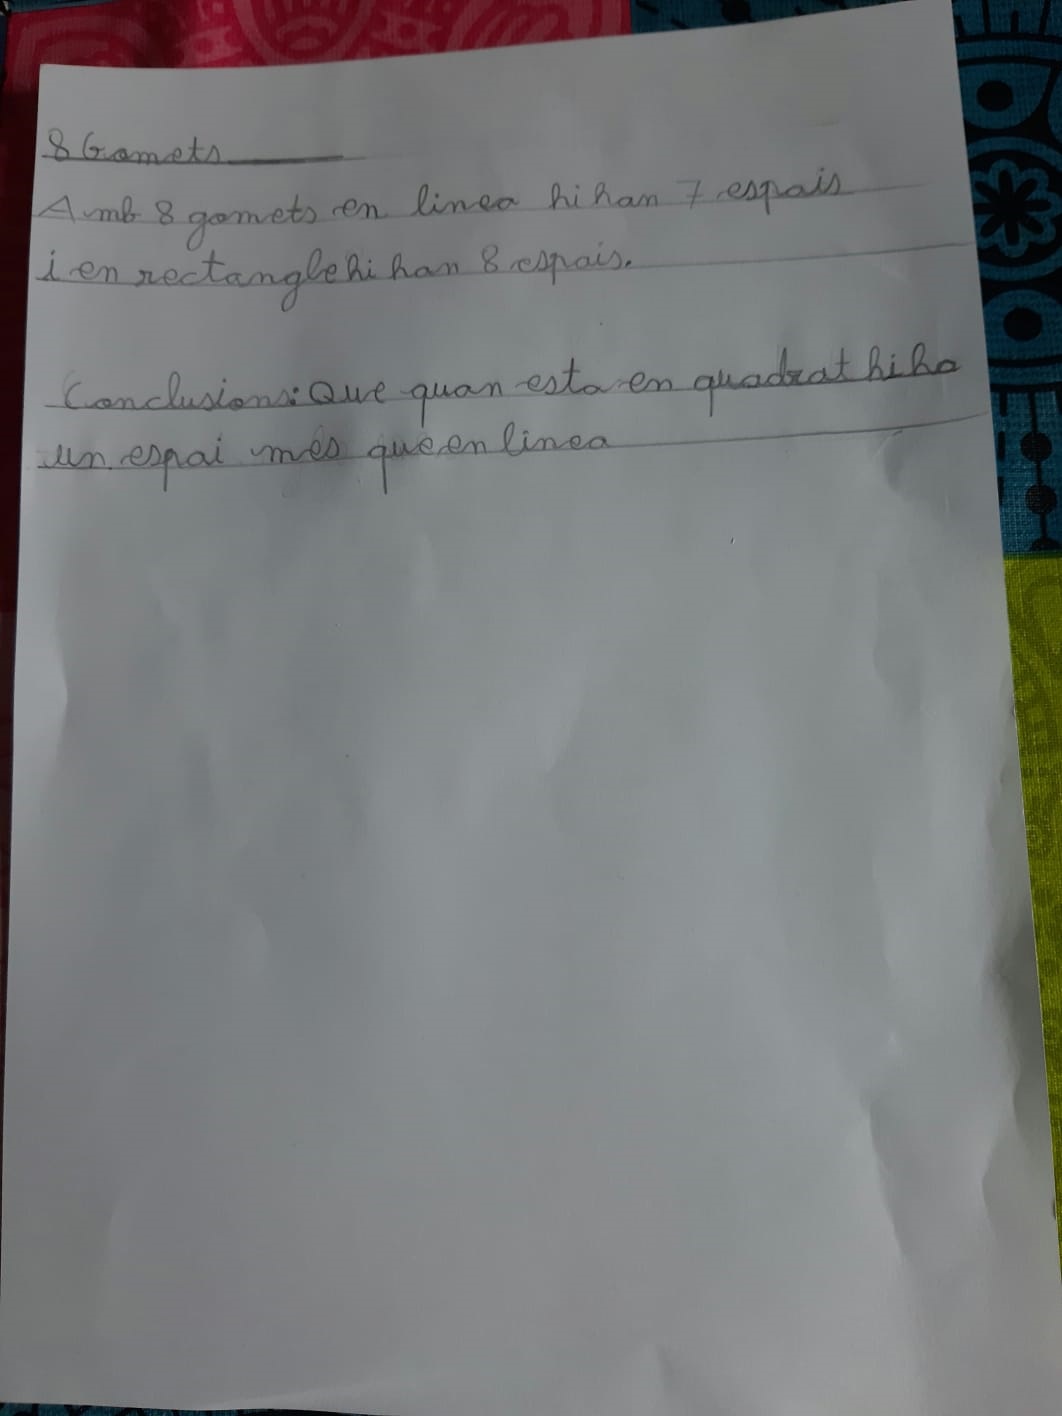 8 Gomets
Amb 8 gomets en linea hi han 7 espais
i en rectangle hi han 8 espais.
Conclusions: Que quan esta en quadrat hi ha
un espai més que en linea